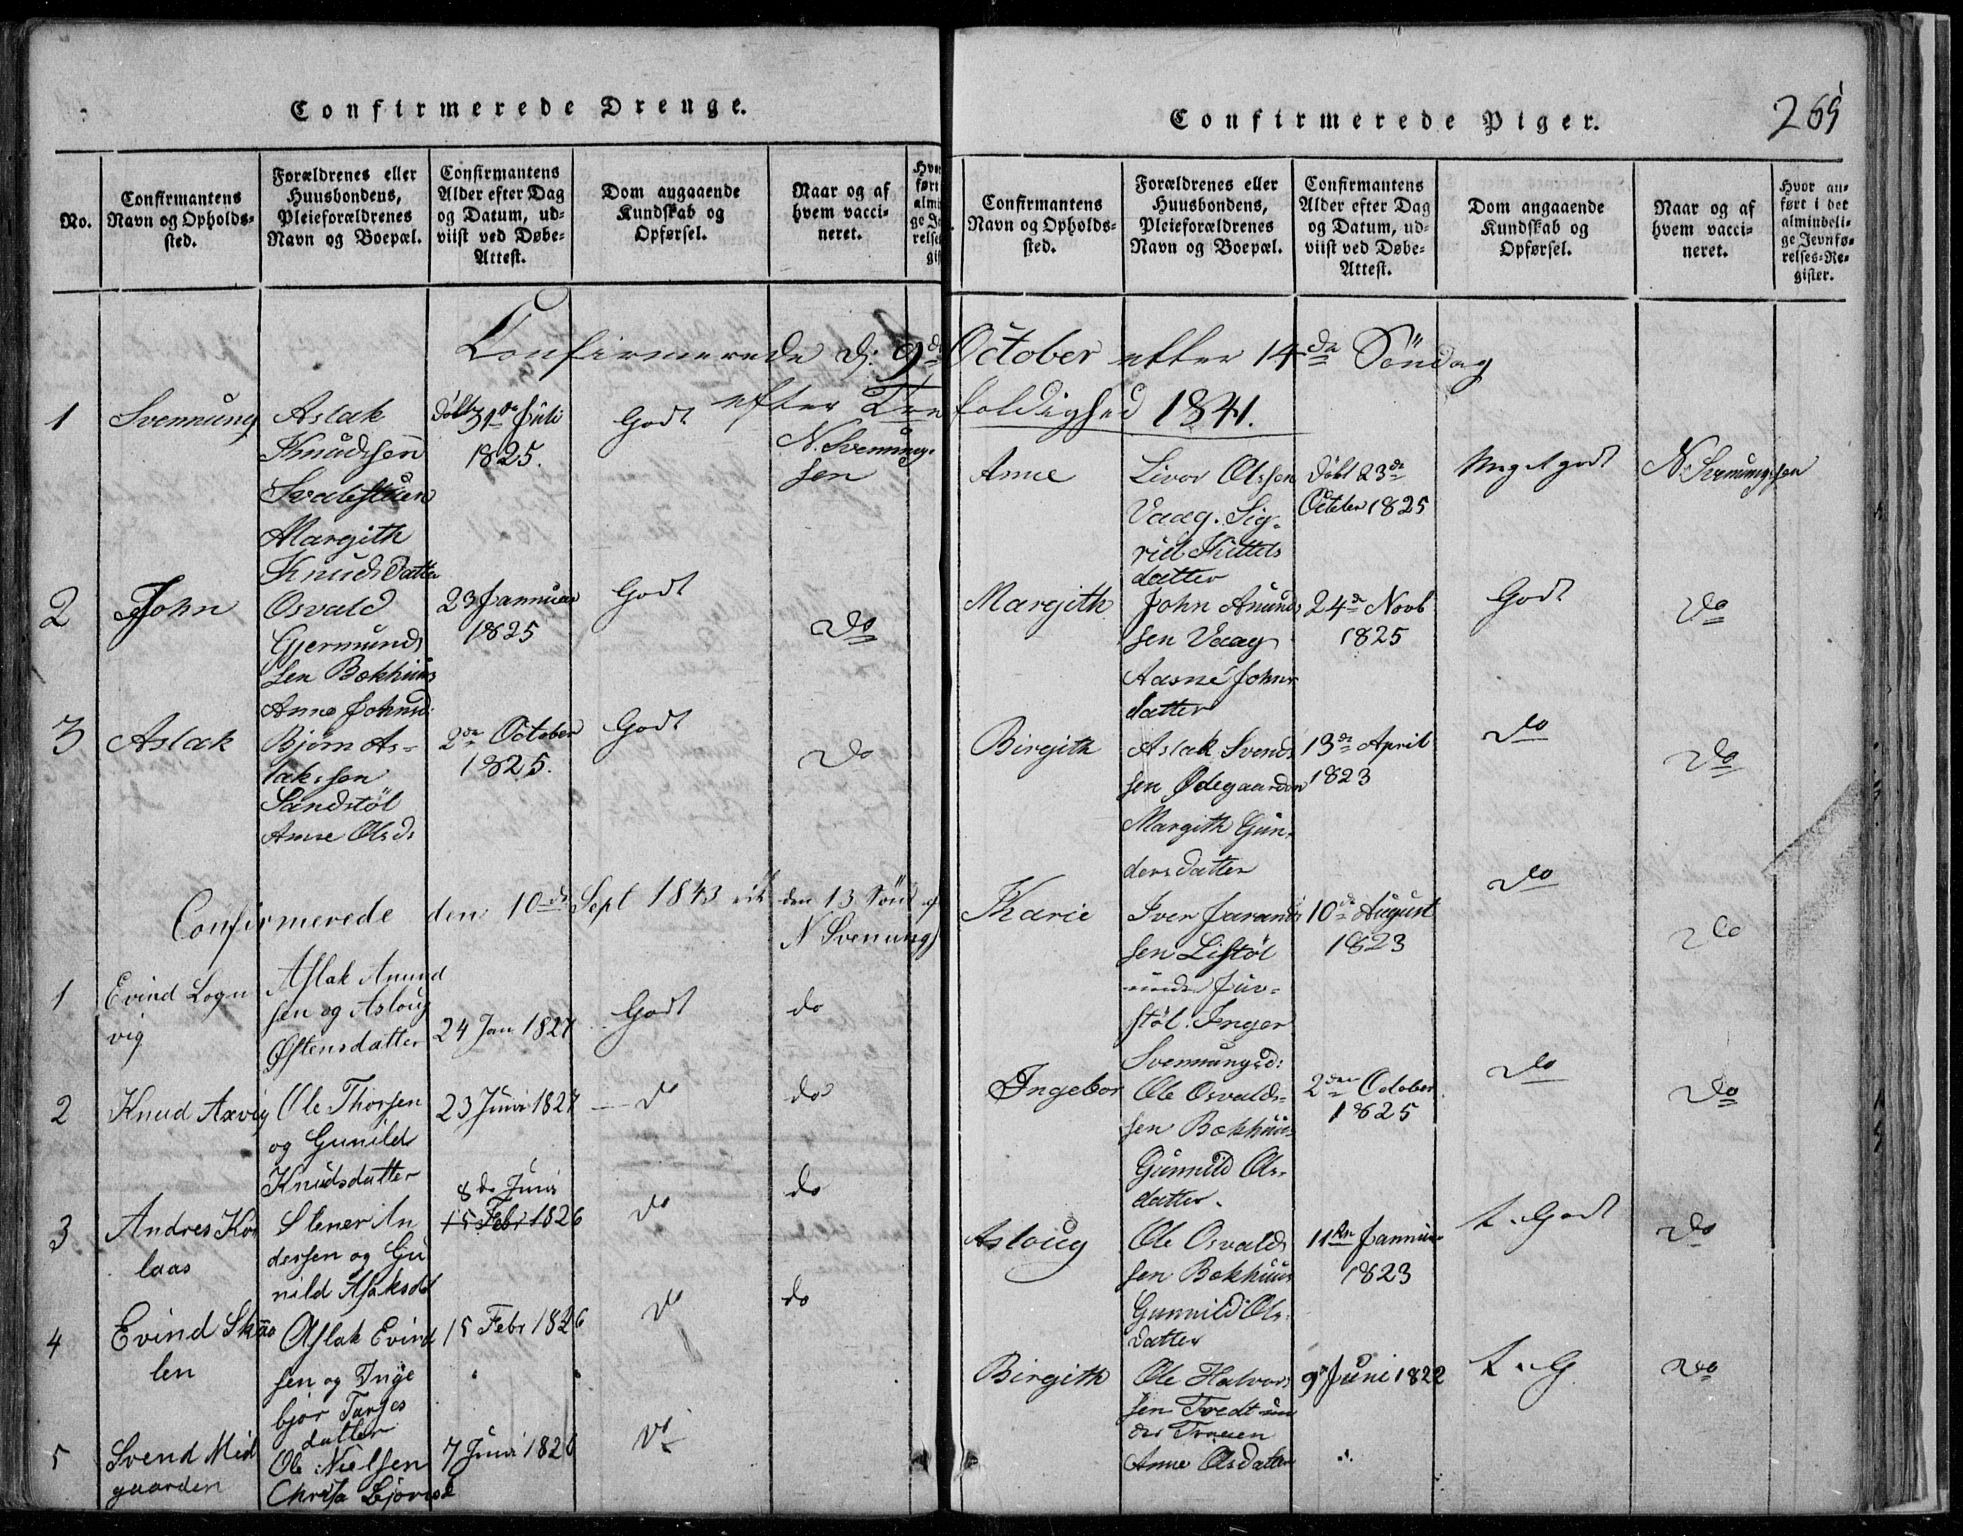 Confirmerede Drenge.
No.
Confirmantens
Navn og Opholds-
sted.
Forældrenes eller
Huusbondens,
Pleieforældrenes
Navn og Boepæl.
Confirmantens
Alder efter Dag
og Datum, ud-
viist ved Døbe-
Attest.
Dom angaaende
Kundskab og
Opførsel.
Naar og af
hvem vacci-
neret.
Confirmerede d: 9de
1
Svennung
Aslak
Knudssen
Margith
Knuds Datter
Døbt 31te Juli
1825.
Godt
N. Svennung-
sen
2
John
Osvald
Gjermunds
sen Bækhuus
Anne Johnsd:
23 Januar
1825
Godt
Do
3
Aslak
Bjørn As-
lakssen
Sandstöl
Anne Olsd:
2den October
1825.
Godt
Do
Confirmerede den 10de Sept 1843 den 13 Sönd
N Svenungs
1
Evind Logn
vig
Aslak Anund
sen og Asloug
Østensdatter
24 Jan 1827
Godt
do
2
Knud Axvig
Ole Thorsen
og Gunild
Knudsdatter
23 Juni 1827
do
do
3
Andres Kos
laas
Stener An
dersen og Gu
nild Aslaksdt
8de Juni
15 Febr 1826
do
do
4
Evind Skaa
len
Aslak Evind
sen og Inge
bjør Tarjes
datter
15 Febr 1826
do
do
5
Svend Mid
gaarden
Ole Nielsen
7 Juni 1826
do
Confirmerede Piger.
265
Confirmantens
Navn og Opholds-
sted.
Forældrenes eller
Huusbondens,
Pleieforældrenes
Navn og Boepæl.
Confirmantens
Alder efter Dag
og Datum, ud-
viist ved Døbe-
Attest.
Dom angaaende
Kundskab og
Opførsel.
Naar og af
hvem vacci-
neret.
Hvor an-
ført i det
almindeli-
ge Jevnfø-
relses-Re-
gister.
October efter 14da Söndag
efter Tree foldighed 1841.
Anne
Livor Olssen
Vaag. Sig-
rid Kittels
datter
Døbt 23de
October 1825
Meget godt
N. Svenungssen
Margith
John Amunds
sen Vaag
Aasne Johns
datter
24de Novb
1825
Godt
Do
Birgith
Aslak Svends
sen Ødegaarden
Margith Gun-
dersdatter
13de April
1823
Do
Do
Karie
Iver Jarands
sen Listöl
under Juv-
stöl. Inger
Svennungsd:
10de August
1823
Do
Do
Ingebor
Ole Osvalds-
sen Bækhuus
Gunnild Ols-
datter.
2den October
1825
Do
Do
Asloug
Ole Osvalds
sen Bækhuus
Gunnild Ols-
datter
11te Januar
1823
t. Godt
Do
Birgith
Ole Halvors
sen Tredt un
der Trauen
Anne Olsdatter
9de Juni 1822
t. G.
Do